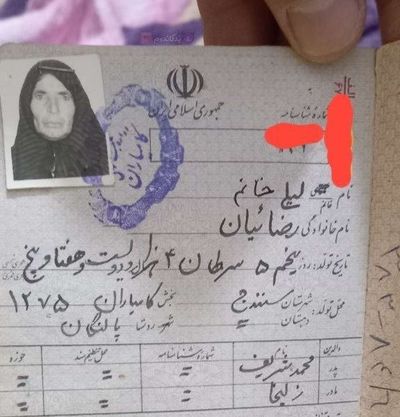 جمهوری اسلامی ایران
شماره شناسنامه
کامیاران
نام خانم لیلی خانم
نام خانوادگی رضائیان
تاریخ تولد: روز پنجم ۵ سرطان ۴ هزار و دویست و هفتاد و پنج
محل تولد: شهرستان سنندج بخش کامیاران ۱۲۷۵
دهستان
شهر روستا پالنگان
والدین نام شماره شناسنامه محل تنظیم سند حوزه
پدر محمد شریف = = =
مادر زلیخا = = =